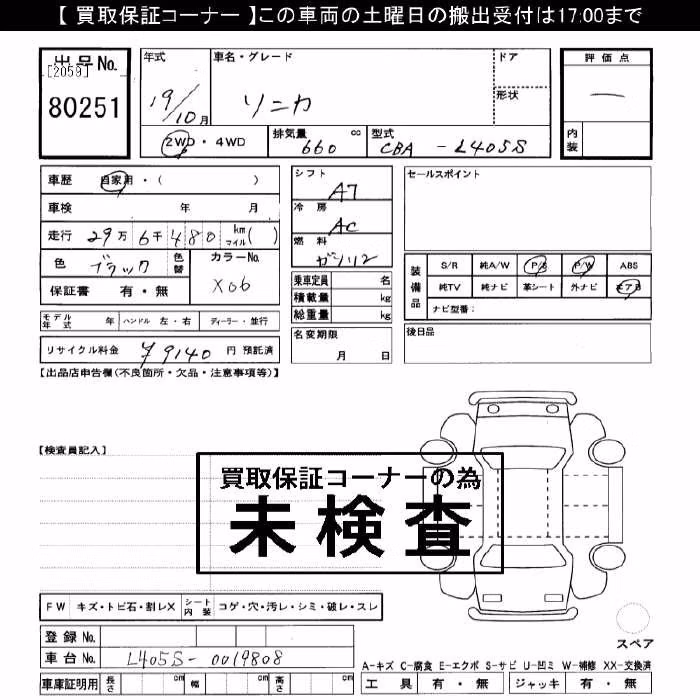 【 買取保証コーナー 】この車両の土曜日の搬出受付は17:00まで
出品 No.
[2059]
80251
年式
19/10月
車名・グレード
ソニカ
ドア
形状
2WD・4WD
排気量
660 cc
型式
CBA - L405S
評価点
内装
車歴 自家用・( )
車検 年 月
走行 29万 6千 480 km マイル ( )
色 ブラック 色替
カラーNo.
X06
保証書 有・無
シフト
AT
冷房
AC
燃料
ガソリン
乗車定員 名
積載量 kg
総重量 kg
セールスポイント
装備品
S/R 純A/W P/S P/W ABS
純TV 純ナビ 革シート 外ナビ エアB
ナビ型番:
モデル年式 年 ハンドル 左・右 ディーラー・並行
名変期限
月 日
後日品
リサイクル料金 ¥9140 円 預託済
【出品店申告欄(不良箇所・欠品・注意事項等)】
【検査員記入】
買取保証コーナーの為
未検査
FW キズ・トビ石・割レX シート内装 コゲ・穴・汚レ・シミ・破レ・スレ
スペア
登録 No.
車台 No. L405S-0019808
車庫証明用 長さ cm 幅 cm 高さ cm
A-キズ C-腐食 E-エクボ S-サビ U-凹ミ W-補修 XX-交換済
工具 有・無 ジャッキ 有・無